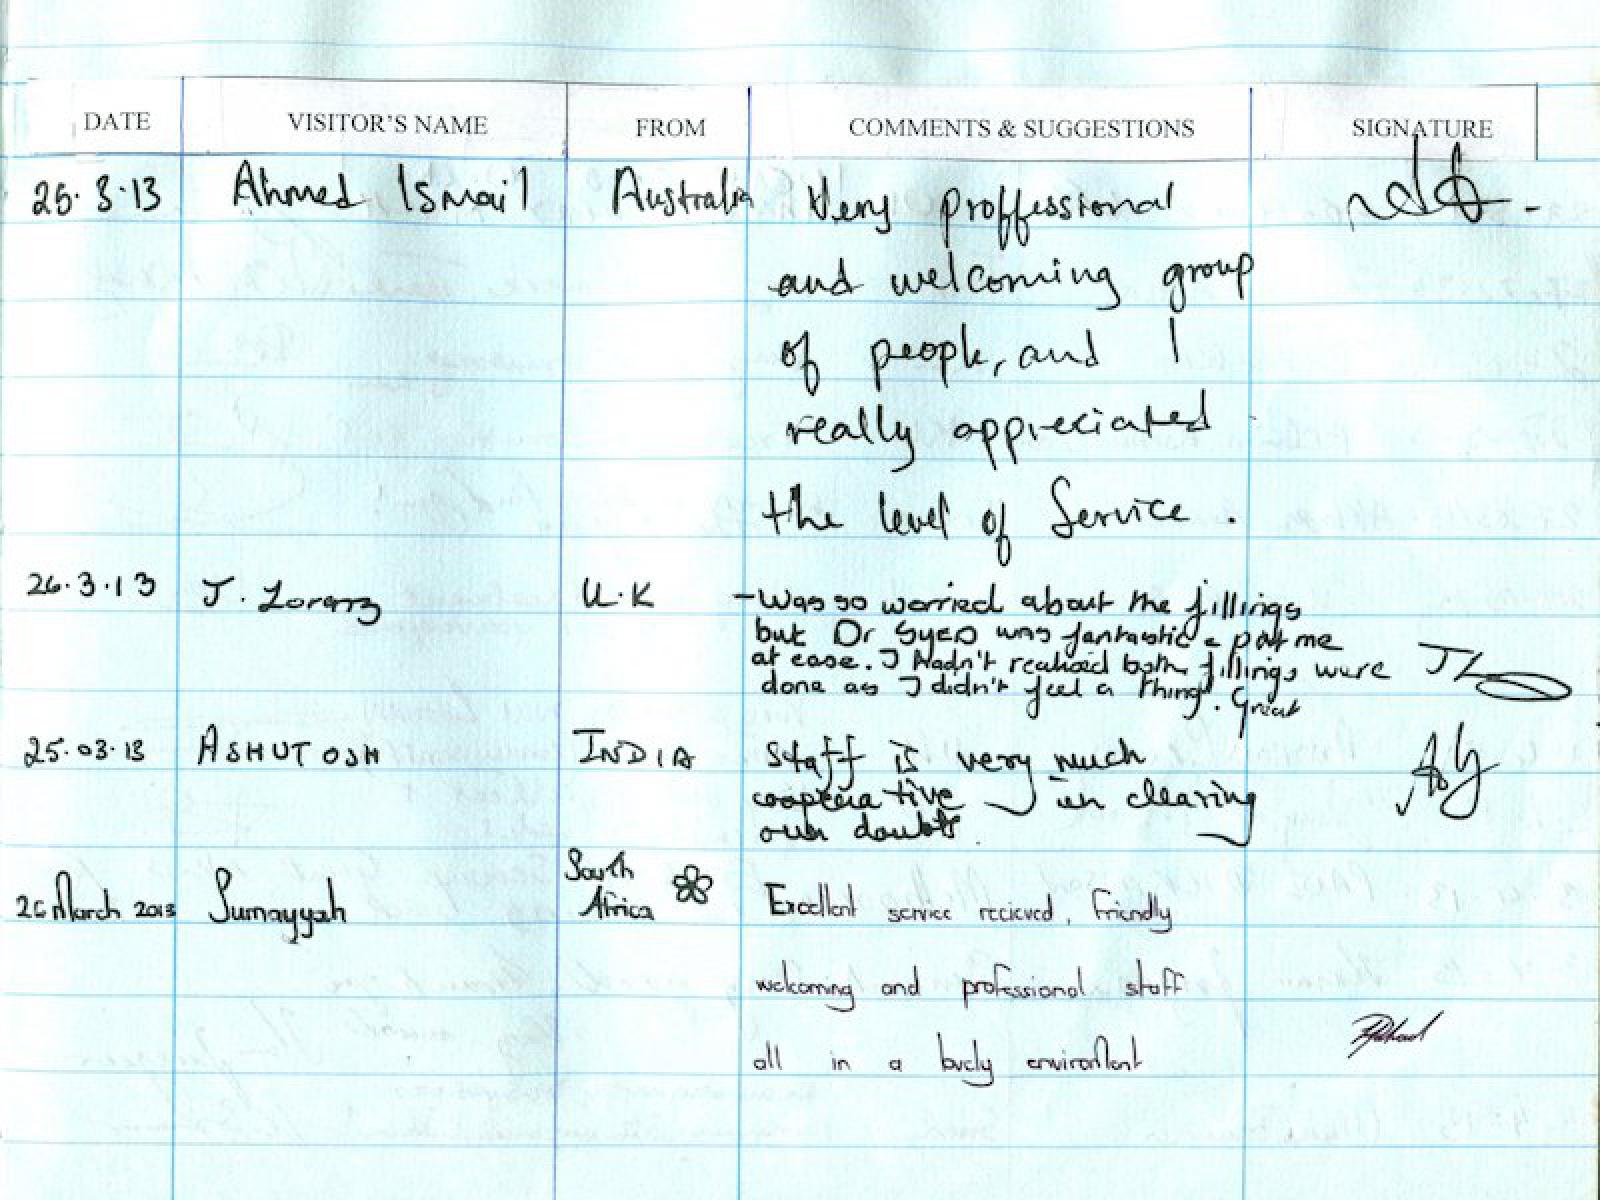 DATE VISITOR'S NAME FROM COMMENTS & SUGGESTIONS SIGNATURE
25.3.13 Ahmed Ismail Australia Very proffessional
and welcoming group
of people, and I
really appreciated
the level of Service.
26.3.13 J. Lorenz U.K - Was so worried about the fillings
but Dr Syed was fantastic & put me
at ease. I hadn't realised both fillings were
done as I didn't feel a thing. Great
JL
25.03.13 ASHUTOSH INDIA Staff is very much
cooperative in clearing
our doubts.
South
26 March 2013 Sumayyah Africa Excellent service recieved, friendly
welcoming and professional staff
all in a lovely enviroment